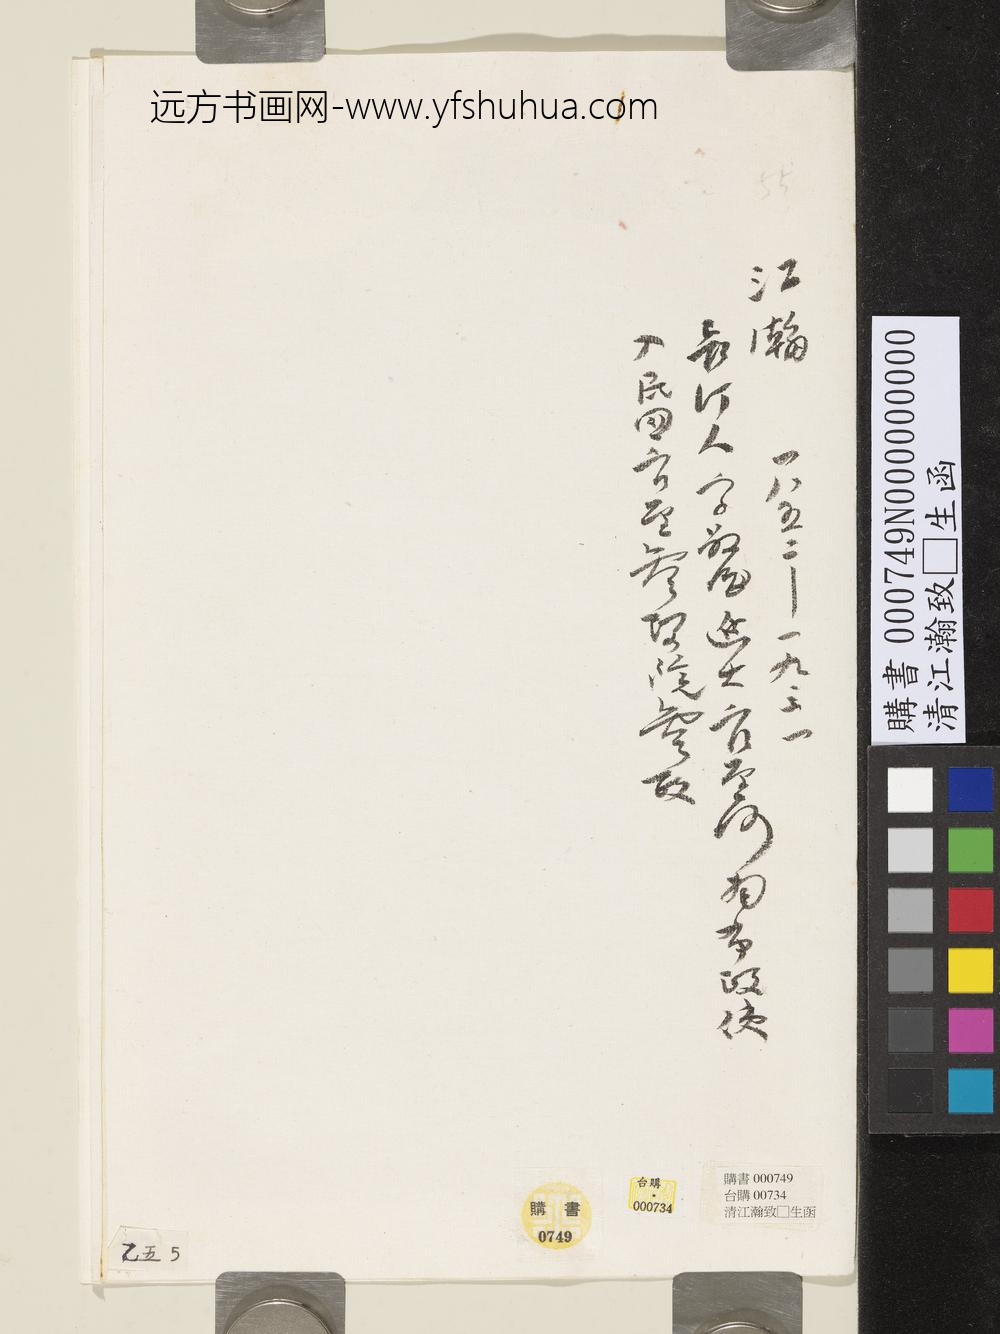 远方书画网-www.yfshuhua.com
55
江瀚
一八五二—一九三一
長汀人字
大官至河南布政使
入民国官至參政院參政
購書 000749N000000000
清江瀚致□生函
購書 000749
台購 00734
清江瀚致□生函
台購
000734
購書
0749
乙五 5